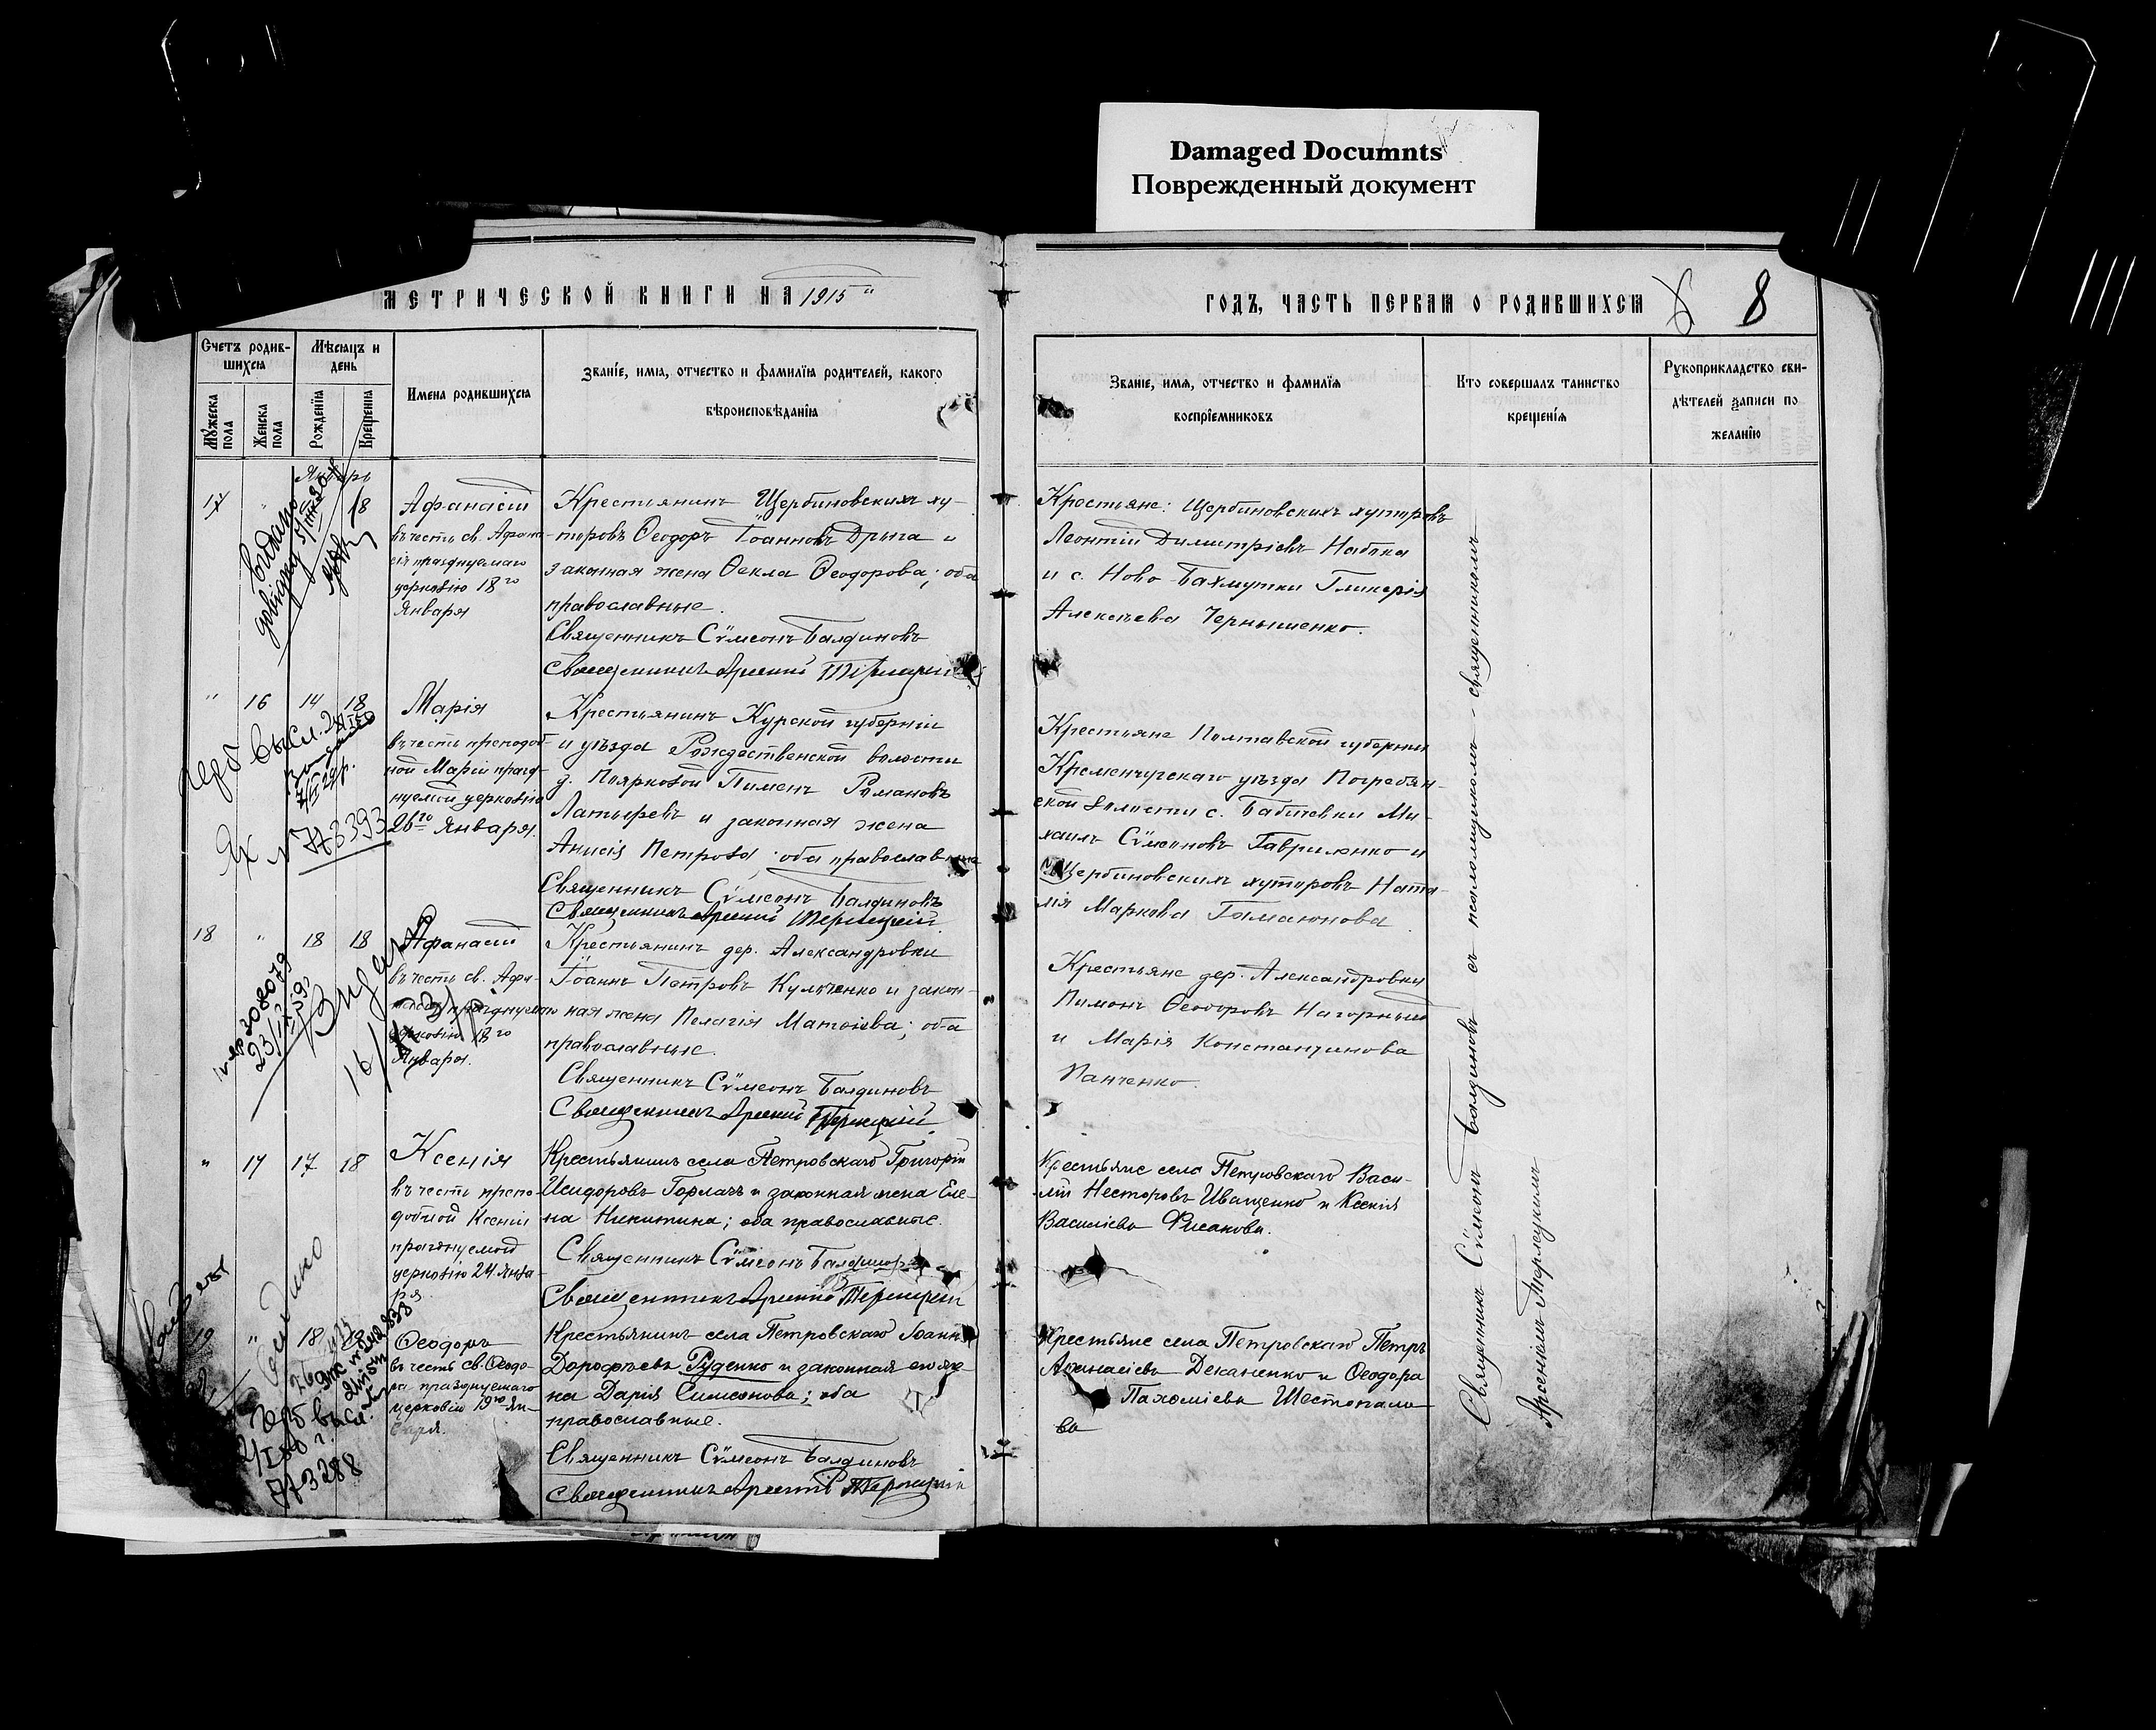 Damaged Documnts
Поврежденный документ
МЕТРИЧЕСКОЙ КНИГИ НА 1915
ГОДЪ, ЧАСТЬ ПЕРВАЯ О РОДИВШИХСЯ
8
Счетъ родив-
шихся
Мѣсяцъ и
день
Мужеска
пола
Женска
пола
Рожденія
Крещенія
Имена родившихся
Званіе, имя, отчество и фамилія родителей, какого
вѣроисповѣданія
Званіе, имя, отчество и фамилія
воспріемниковъ
Кто совершалъ таинство
крещенія
Рукоприкладство сви-
дѣтелей записи по
желанію
18
Афанасій
въ честь св. Афана-
сія празднуемаго
церковію 18го
Января
Крестьянинъ Щербиновскихъ ху-
торовъ Ѳеодоръ Іоанновъ Дрыга и
законная жена Ѳекла Ѳеодорова; оба
православные.
Священникъ Сѵмеонъ Балдиновъ
Священникъ Арсеній
Крестьяне: Щербиновскихъ хуторовъ
Леонтій Димитріевъ Набока
и с. Ново-Бахмутки Гликерія
Алексѣева Чернышенко.
" 16 14 18
Марія
въ честь преподоб-
ной Маріи празд-
нуемой церковію
26го Января.
№ 773393
Крестьянинъ Курской губерніи
и уѣзда Рождественской волости
д. Поярковой Пименъ Романовъ
Латыревъ и законная жена
Анисія Петрова; оба православные
Священникъ Сѵмеонъ Балдиновъ
Священникъ Арсеній Терлецкій
Крестьяне Полтавской губерніи
Кременчугскаго уѣзда Погребян-
ской волости с. Бабичевки Ми-
хаилъ Сѵмеоновъ Гавриленко и
Щербиновскихъ хуторовъ Ната-
лія Маркова Гамаюнова
18 " 18 18
Афанасій
въ честь св. Афа-
церковію 18го
Января.
Крестьянинъ дер. Александровки
Іоаннъ Петровъ Кульченко и закон-
ная жена Пелагія Матвіева; оба
православные.
Священникъ Сѵмеонъ Балдиновъ
Священникъ Арсеній Терлецкій
Крестьяне дер. Александровки
Пимонъ Ѳеодоровъ Нагорный
и Марія Константинова
Панченко.
" 17 17 18
Ксенія
въ честь препо-
добной Ксеніи
празднуемой
церковію 24 Янва-
ря
Крестьянинъ села Петровскаго Григорій
Исидоровъ Горлачъ и законная жена Еле-
на Никитина; оба православные.
Священникъ Сѵмеонъ Балдиновъ
Священникъ Арсеній Терлецкій
Крестьяне села Петровскаго Васи-
лій Несторовъ Иващенко и Ксенія
Василіева
19 " 18
Ѳеодоръ
въ честь св. Ѳеодо-
ра празднуемаго
церковію 19го Ян-
варя.
773288
Крестьянинъ села Петровскаго Іоаннъ
Дорофѣевъ Руденко и законная его же-
на Дарія Симеонова; оба
православные.
Священникъ Сѵмеонъ Балдиновъ
Священникъ Арсеній Терлецкій
Крестьяне села Петровскаго Петръ
Афанасіевъ Деканенко и Ѳеодора
Пахоміева Шестопало-
ва
Священникъ Сѵмеонъ Балдиновъ съ псаломщикомъ-священникомъ
Арсеніемъ Терлецкимъ